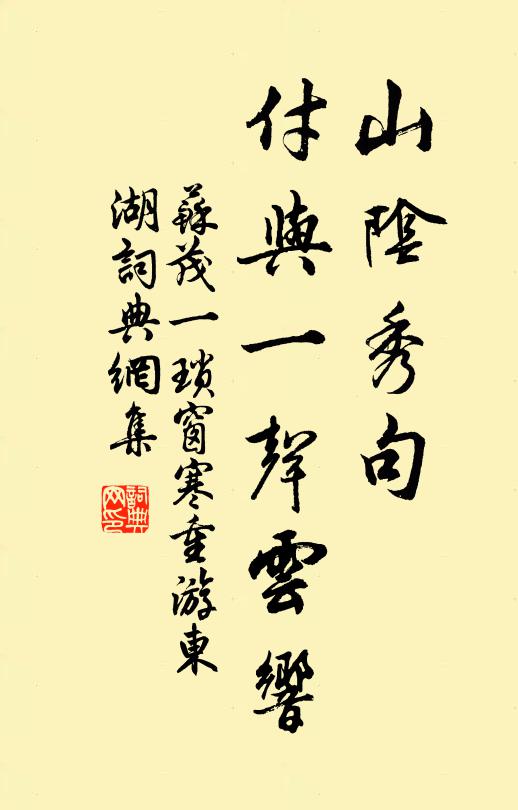 山陰秀句
付與一聲雲響
蘇茂一瑣窗寒重游東
湖詞典網集
詞典
网印